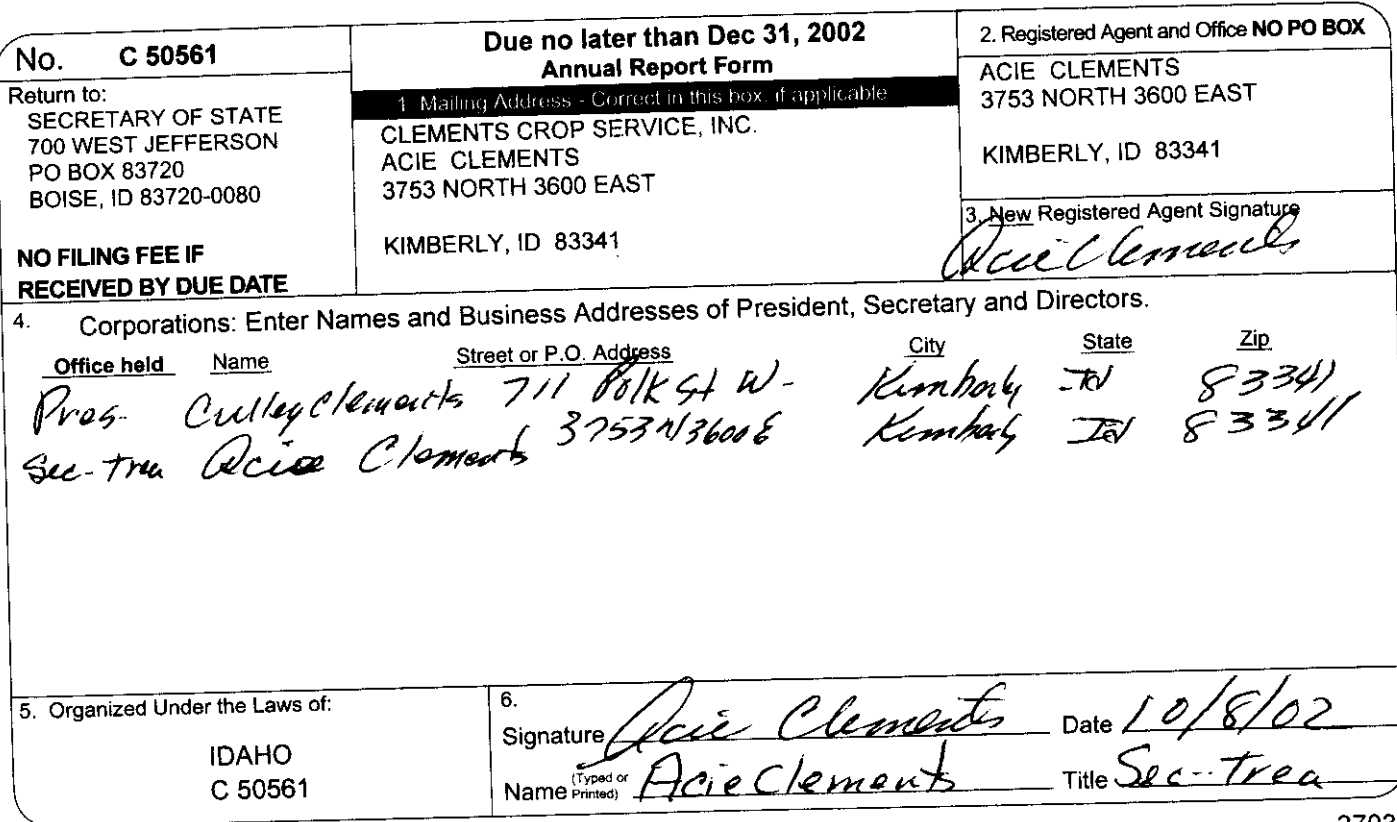 No. C 50561
Return to:
SECRETARY OF STATE
700 WEST JEFFERSON
PO BOX 83720
BOISE, ID 83720-0080
NO FILING FEE IF
RECEIVED BY DUE DATE
Due no later than Dec 31, 2002
Annual Report Form
1 Mailing Address - Correct in this box, if applicable
CLEMENTS CROP SERVICE, INC.
ACIE CLEMENTS
3753 NORTH 3600 EAST
KIMBERLY, ID 83341
2. Registered Agent and Office NO PO BOX
ACIE CLEMENTS
3753 NORTH 3600 EAST
KIMBERLY, ID 83341
3. New Registered Agent Signature
Acie Clements
4. Corporations: Enter Names and Business Addresses of President, Secretary and Directors.
Office held Name Street or P.O. Address City State Zip
Pres. Culley Clements 711 Polk St W- Kimberly Id 83341
Sec-Trea Acie Clements 3753 N 3600 E Kimberly Id 83341
5. Organized Under the Laws of:
IDAHO
C 50561
6.
Signature Acie Clements Date 10/8/02
Name (Typed or Printed) Acie Clements Title Sec-Trea